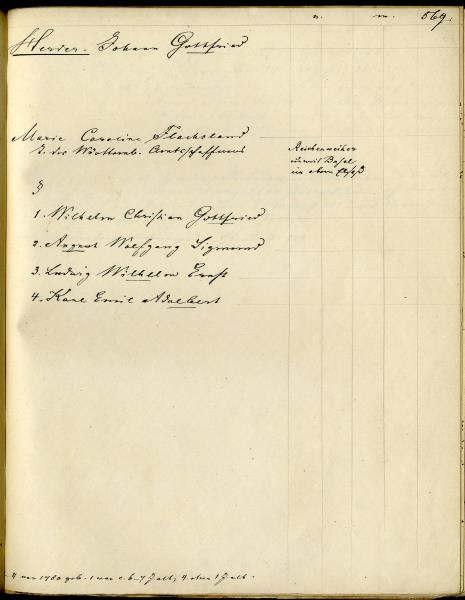 n. m. 569.
Herder. Johann Gottfried
Marie Caroline Flachsland
T. des Württemb. Amtsschaffners
Reichenweiher
unweit Basel
im obern Elsaß
§
1. Wilhelm Christian Gottfried
2. August Wolfgang Sigmund
3. Ludwig Wilhelm Ernst
4. Karl Emil Adalbert
4 vor 1780 geb. 1 war c. 6-7 J alt, 4 etwa 1 J alt.